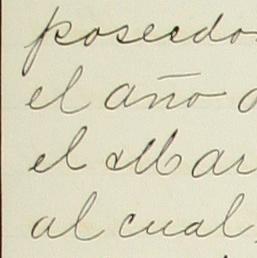 poseedo
el año
el Mar
al cual,